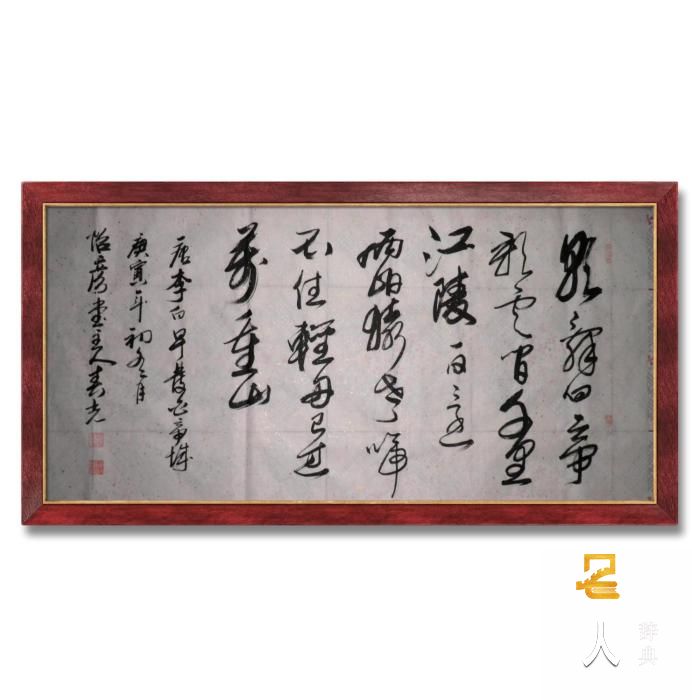 朝辭白帝
彩雲間千里
江陵一日還
兩岸猿聲啼
不住輕舟已過
萬重山
唐李白早發白帝城
庚寅年初冬月
怡堂主人春光
名人
辞典